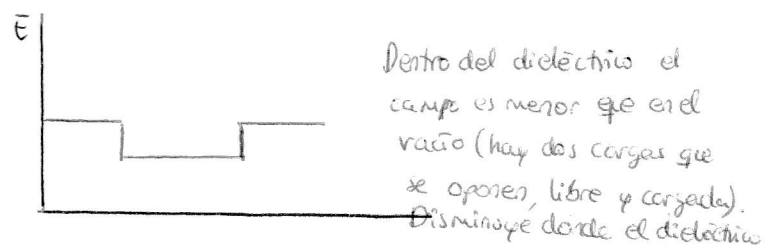 E
Dentro del dieléctrico el
campo es menor que en el
vacío (hay dos cargas que
se oponen, libre y cargada).
Disminuye donde el dieléctrico